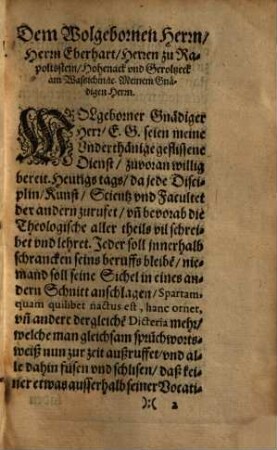 Dem Wolgebornen Herrn/
Herrn Eberhart/ Herren zu Ra-
poltzstein/ Hohenack vnd Geroltzeck
am Wassichin ꝛc. Meinem Gnä-
digen Herrn.
WOlgeborner Gnädiger
Herr/ E. G. seien meine
Vnderthänige geflissene
Dienst/ zuvoran willig
bereit. Heutigs tags/ da jede Disci-
plin/ Kunst/ Scientz vnd Facultet
der andern zurufet/ vñ bevorab die
Theologische aller theils vil schrei-
bet vnd lehret. Jeder soll innerhalb
schrancken seins beruffs bleibē/ nie-
mand soll seine Sichel in eines an-
dern Schnitt anschlagen/ Spartam-
quam quilibet nactus est, hanc ornet,
vñ andere dergleichē Dicteria mehr/
welche man gleichsam sprüchworts-
weiß nun zur zeit außruffet/ vnd al-
le dahin füsen vnd schlisen/ daß kei-
ner etwas ausserhalb seiner Vocati-
):( 2